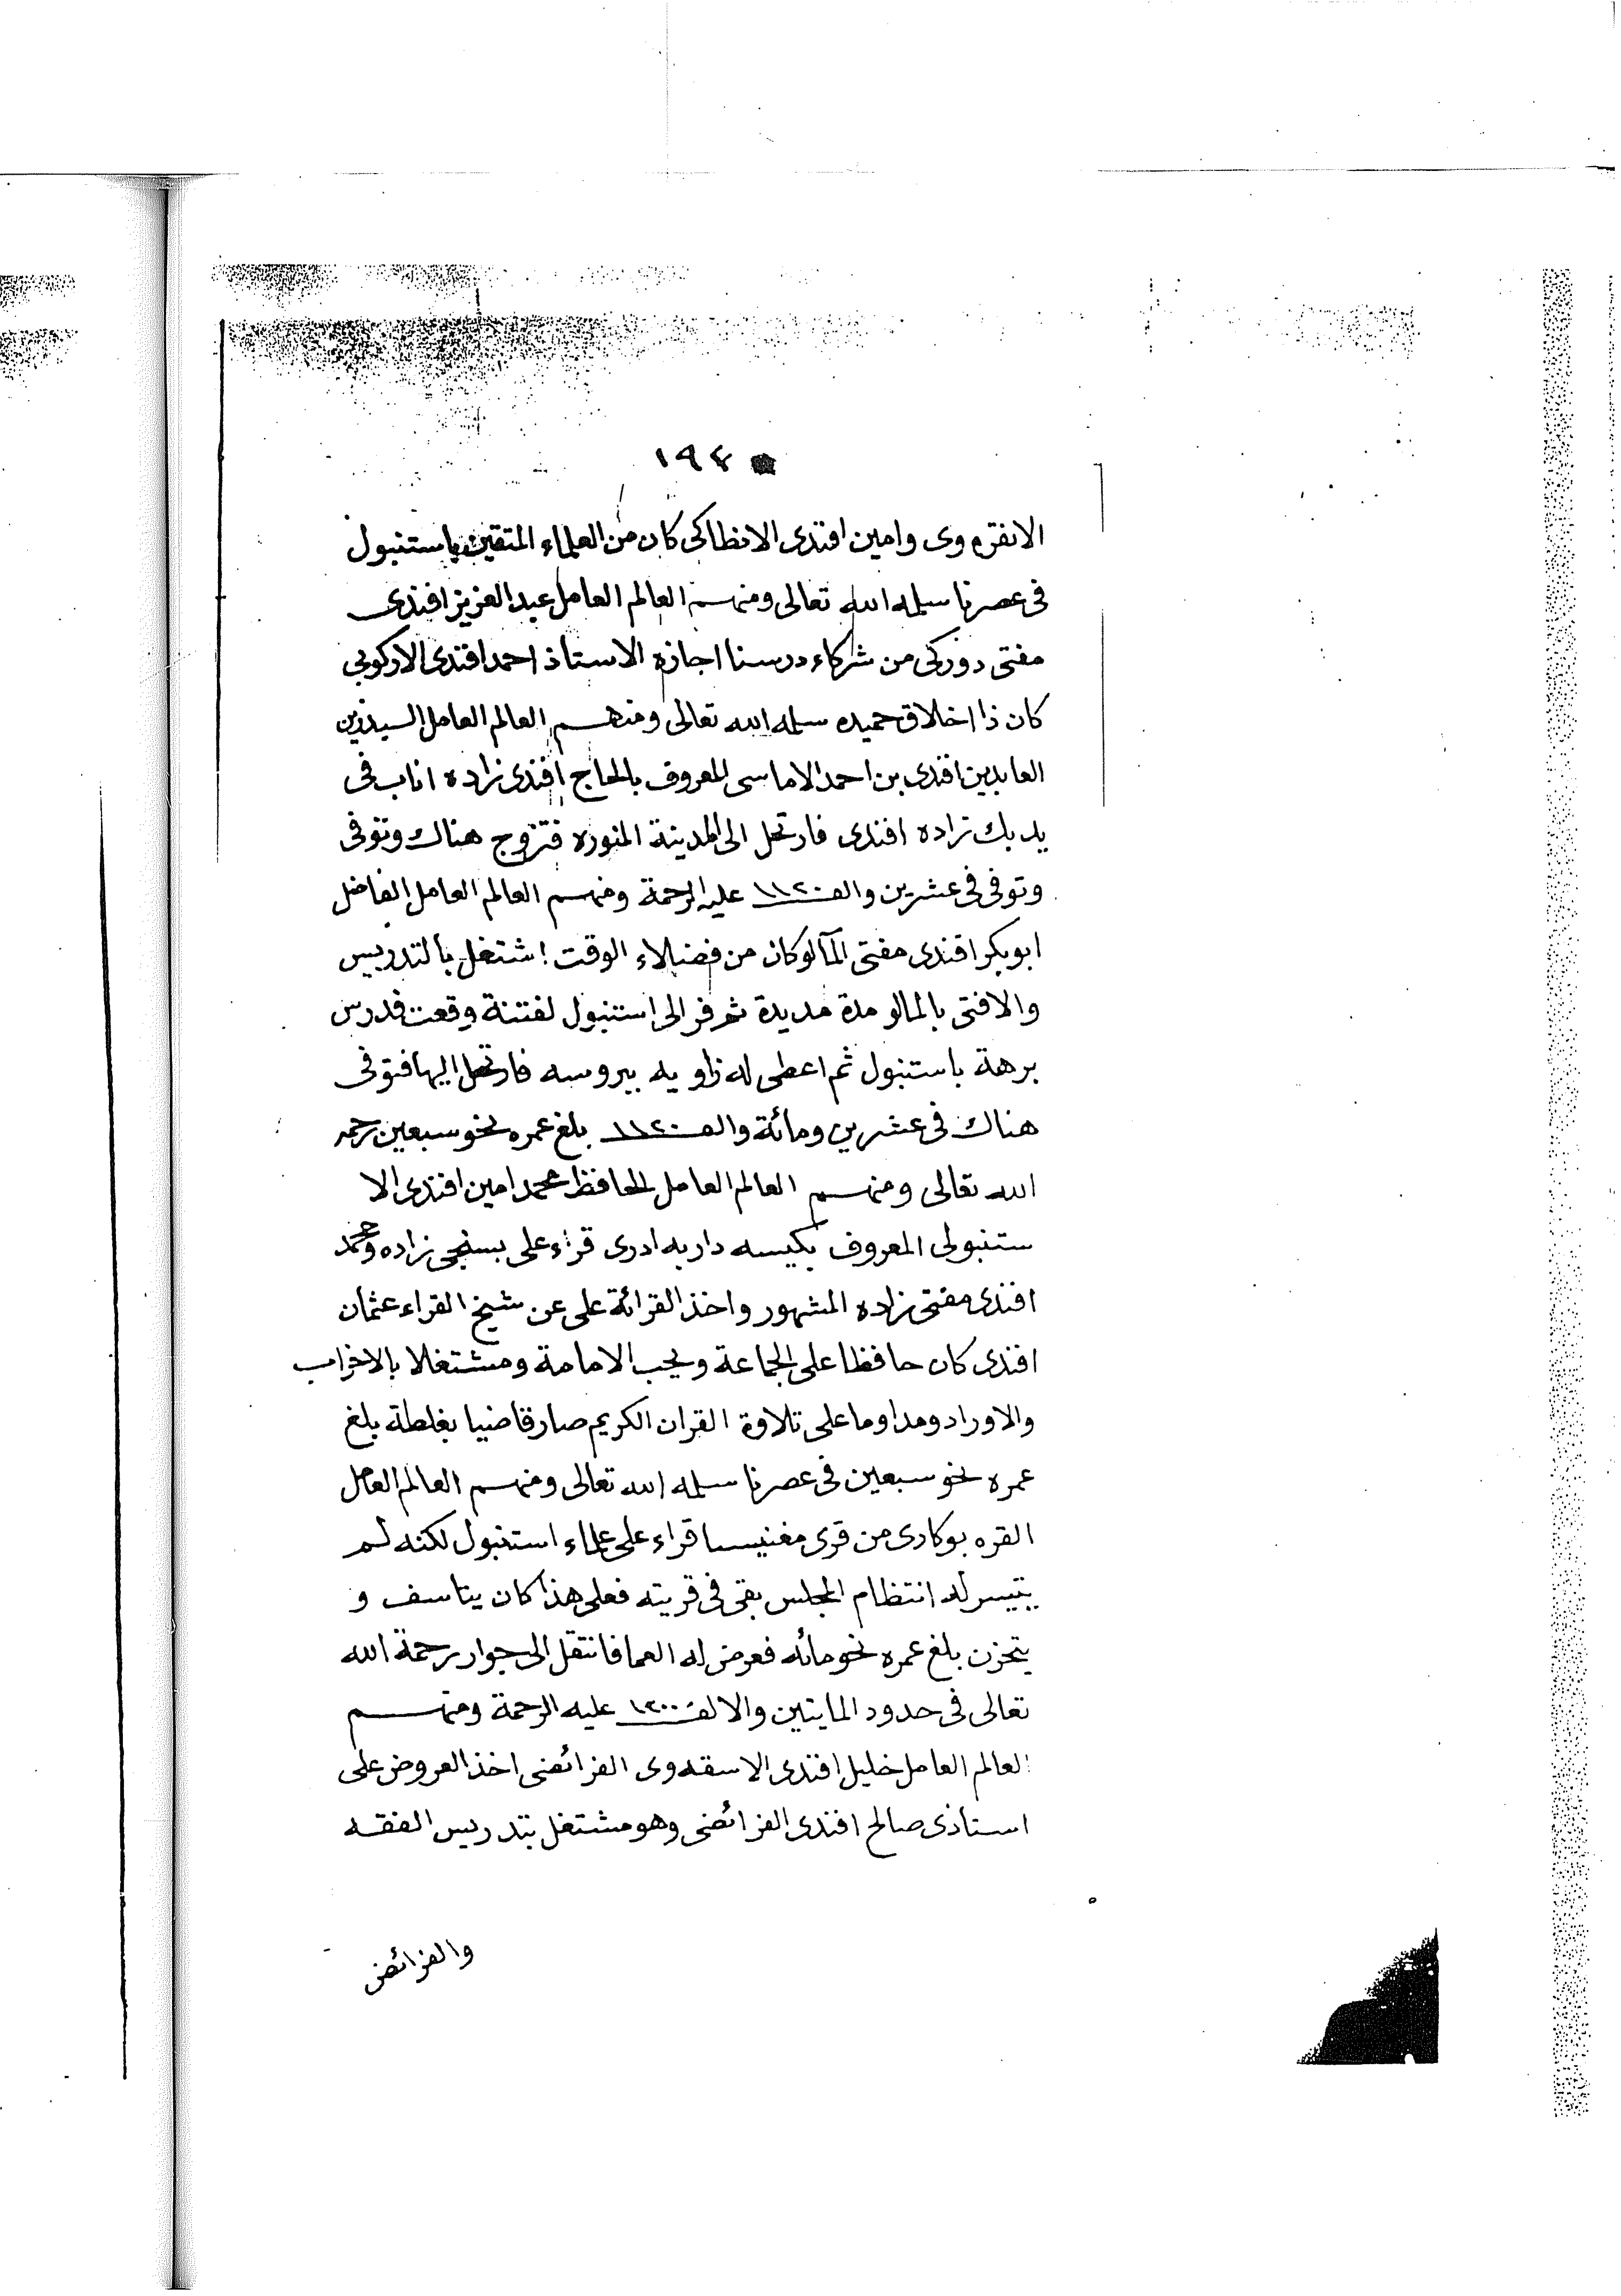 ١٩٤
الانقره وى وامين افندى الانطاكى كان من العلماء المتقين باستنبول
فى عصرنا سلمه الله تعالى ومنهم العالم العامل عبد العزيز افندى
مفتى دوركى من شركاء درسنا اجازه الاستاذ احمد افندى الاركوبى
كان ذا اخلاق حميده سلمه الله تعالى ومنهم العالم العامل السيد زين
العابدين افندى بن احمد الاماسى المعروف بالحاج افندى زاده اناب فى
يد بك زاده افندى فارتحل الى المدينة المنوره فتزوج هناك وتوفى
وتوفى فى عشرين والف ١١٢٠ عليه الرحمة ومنهم العالم العامل الفاضل
ابوبكر افندى مفتى المآلو كان من فضلاء الوقت اشتغل بالتدريس
والافتى بالمالو مدة مديدة ثم فر الى استنبول لفتنة وقعت فدرس
برهة باستنبول ثم اعطى له زاويه ببروسه فارتحل اليها فتوفى
هناك فى عشرين ومائة والف ١١٢٠ بلغ عمره نحو سبعين رحمه
الله تعالى ومنهم العالم العامل الحافظ محمد امين افندى الا
ستنبولى المعروف بكيسه دار به ادرى قراء على بسنجى زاده ومحمد
افندى مفتى زاده المشهور واخذ القرائة على عن شيخ القراء عثمان
افندى كان حافظا على الجماعة ويحب الامامة ومشتغلا بالاخراب
والاوراد ومداوما على تلاوة القران الكريم صار قاضيا بغلطة بلغ
عمره نحو سبعين فى عصرنا سلمه الله تعالى ومنهم العالم العامل
القره بوكادى من قرى مغنيسا قراء على علماء استنبول لكنه لم
يتيسر له انتظام المجلس بقى فى قريته فعلى هذا كان يتاسف و
يتحزن بلغ عمره نحو مائه فعرض له العما فانتقل الى جوار رحمة الله
تعالى فى حدود المايتين والالف ١٢٠٠ عليه الرحمة ومنهم
العالم العامل خليل افندى الاسقه وى الفرائضى اخذ العروض على
استاذى صالح افندى الفرائضى وهو مشتغل بتدريس الفقه
والفرائض